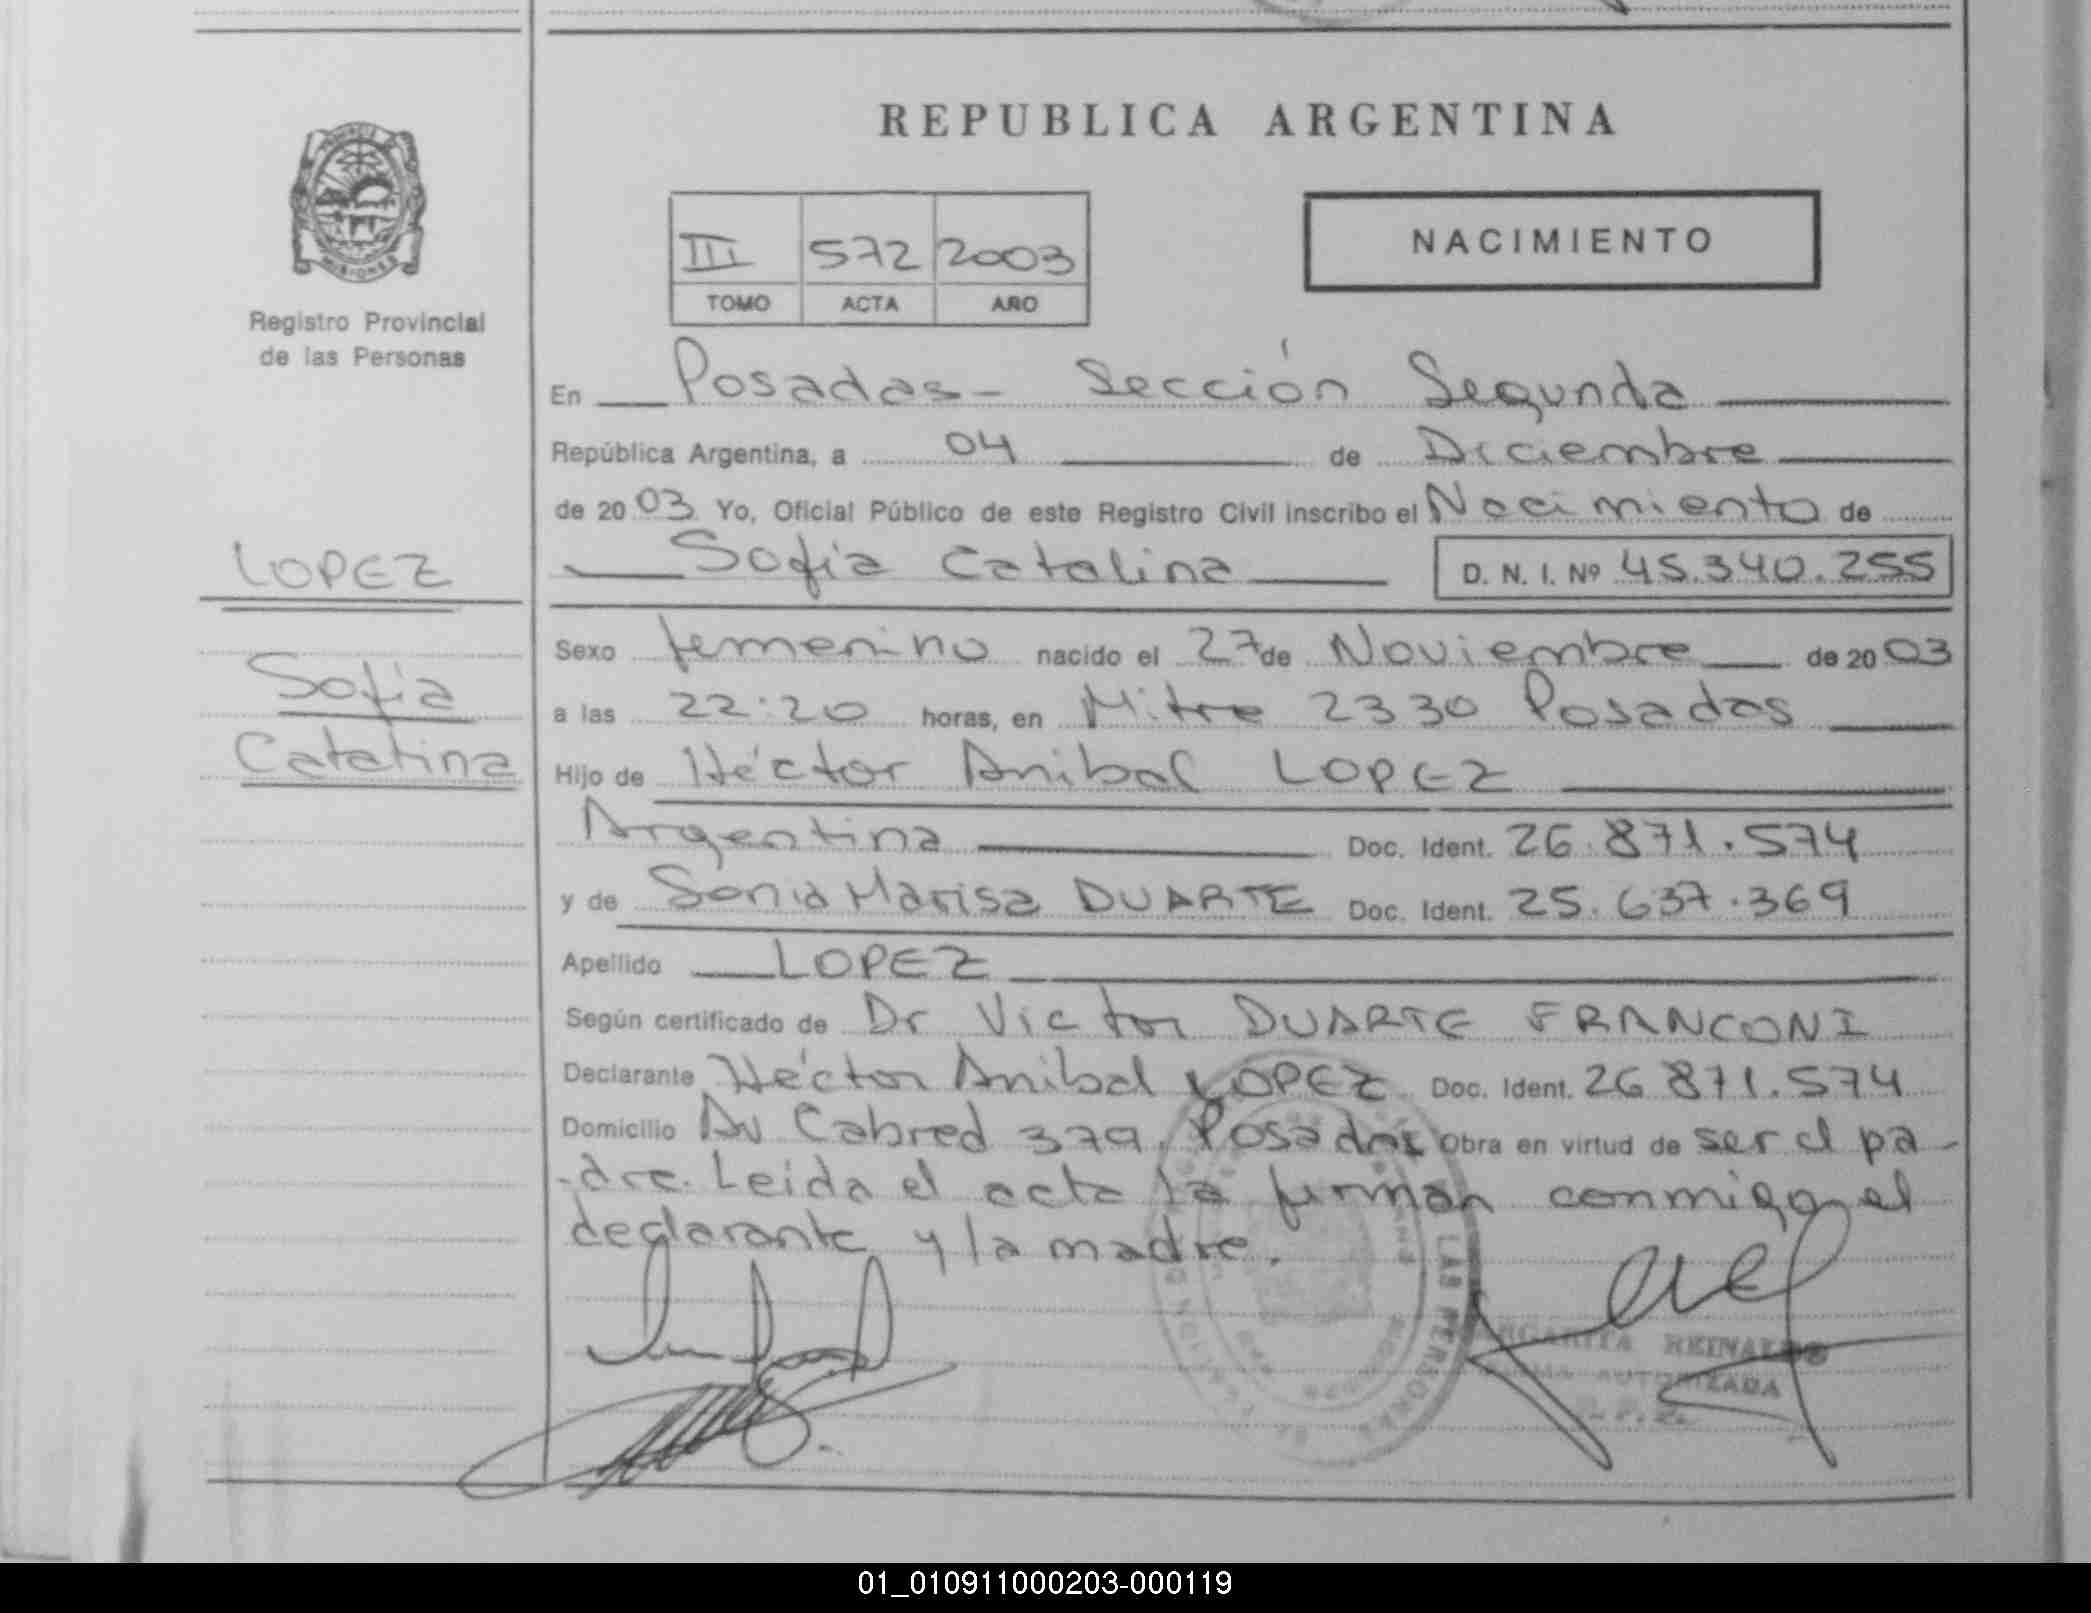 REPUBLICA ARGENTINA
PROVINCIA
MISIONES
Registro Provincial
de las Personas
III 572 2003
TOMO ACTA AÑO
NACIMIENTO
En Posadas - Sección Segunda
República Argentina, a 04 de Diciembre
de 20 03 Yo, Oficial Público de este Registro Civil inscribo el Nacimiento de
Sofia Catalina D. N. I. Nº 45.340.255
LOPEZ
Sofia
Catalina
Sexo femenino nacido el 27 de Noviembre de 20 03
a las 22:20 horas, en Mitre 2330 Posadas
Hijo de Héctor Anibal LOPEZ
Argentina Doc. Ident. 26.871.574
y de Sonia Marisa DUARTE Doc. Ident. 25.637.369
Apellido LOPEZ
Según certificado de Dr Victor DUARTE FRANCONI
Declarante Héctor Anibal LOPEZ Doc. Ident. 26 871.574
Domicilio Av Cabred 379. Posadas Obra en virtud de ser el pa-
-dre. Leida el acta la firman conmigo el
declarante y la madre.
LAS PERSONAS
MARGARITA REINALDO
FIRMA AUTORIZADA
01_010911000203-000119